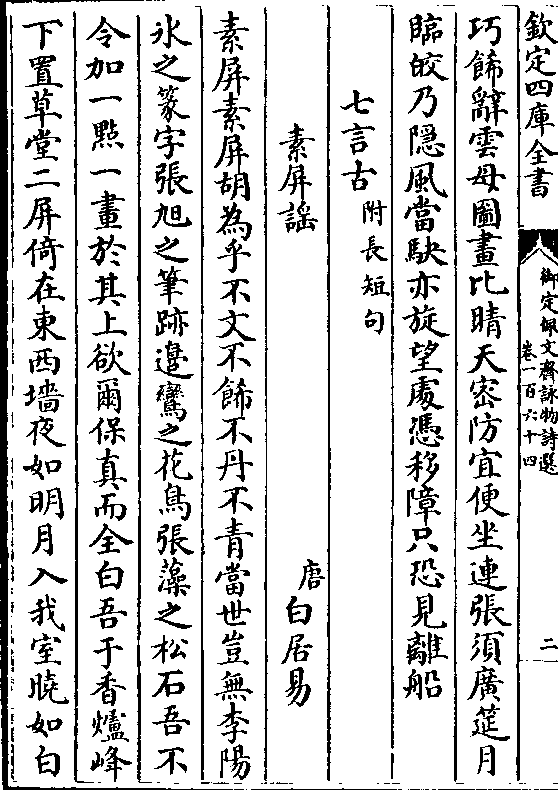 欽定四庫全書
御定佩文齋詠物詩選
卷一百六十四
二
巧餙辭雲母圖畫比晴天密防宜便坐連張須廣筵月
臨皎乃隠風當缺亦旋望處憑移障只恐見離船
七言古附長短句
素屏謡
唐白居易
素屏素屏胡為乎不文不餙不丹不青當世豈無李陽
氷之篆字張旭之筆跡邉鸞之花鳥張藻之松石吾不
令加一點一畫於其上欲爾保真而全白吾于香爐峰
下置草堂二屏倚在東西墻夜如明月入我室曉如白